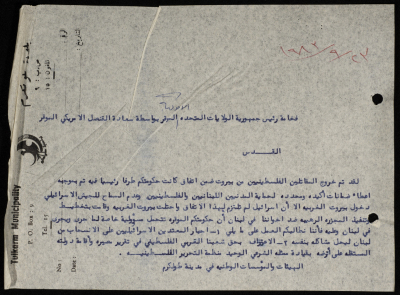 بلدية طولكرم
ص.ب: ٩
تلفون: ١٥
الرقم:
التاريخ:
١٩٨٢/٩/٢٣
فخامة رئيس جمهورية الولايات المتحده الموقر بواسطة سعادة القنصل الامريكي الموقر
القدس
لقد تم خروج المقاتلين الفلسطينيين من بيروت ضمن اتفاق كانت حكومتكم طرفا رئيسيا فيه تم بموجبه
اعطاء ضمانات أكيده ومحدده لحماية المدنيين اللبنانيين والفلسطينيين وعدم السماح للجيش الاسرائيلي
دخول بيروت الغربيه الا أن اسرائيل لم تلتزم بهذا الاتفاق واحتلت بيروت الغربيه وقامت بتخطيط
تنفيذ المجزره الرهيبه ضد اخواننا في لبنان أن حكومتكم الموقره تتحمل مسؤولية خاصة لما جرى ويجري
في لبنان وعليه فأننا نطالبكم العمل على ما يلي ١- اجبار المعتدين الاسرائيليين على الانسحاب من
لبنان لحل مشاكله بنفسه ٢- الاعتراف بحق شعبنا العربي الفلسطيني في تقرير مصيره واقامة دولته
المستقله على أرضه بقيادة ممثله الشرعي الوحيد منظمة التحرير الفلسطينيه.
الهيئات والمؤسسات الوطنيه في مدينة طولكرم
Tulkarm Municipality
P. O. Box: 9
Tel: 15
No:
Date: